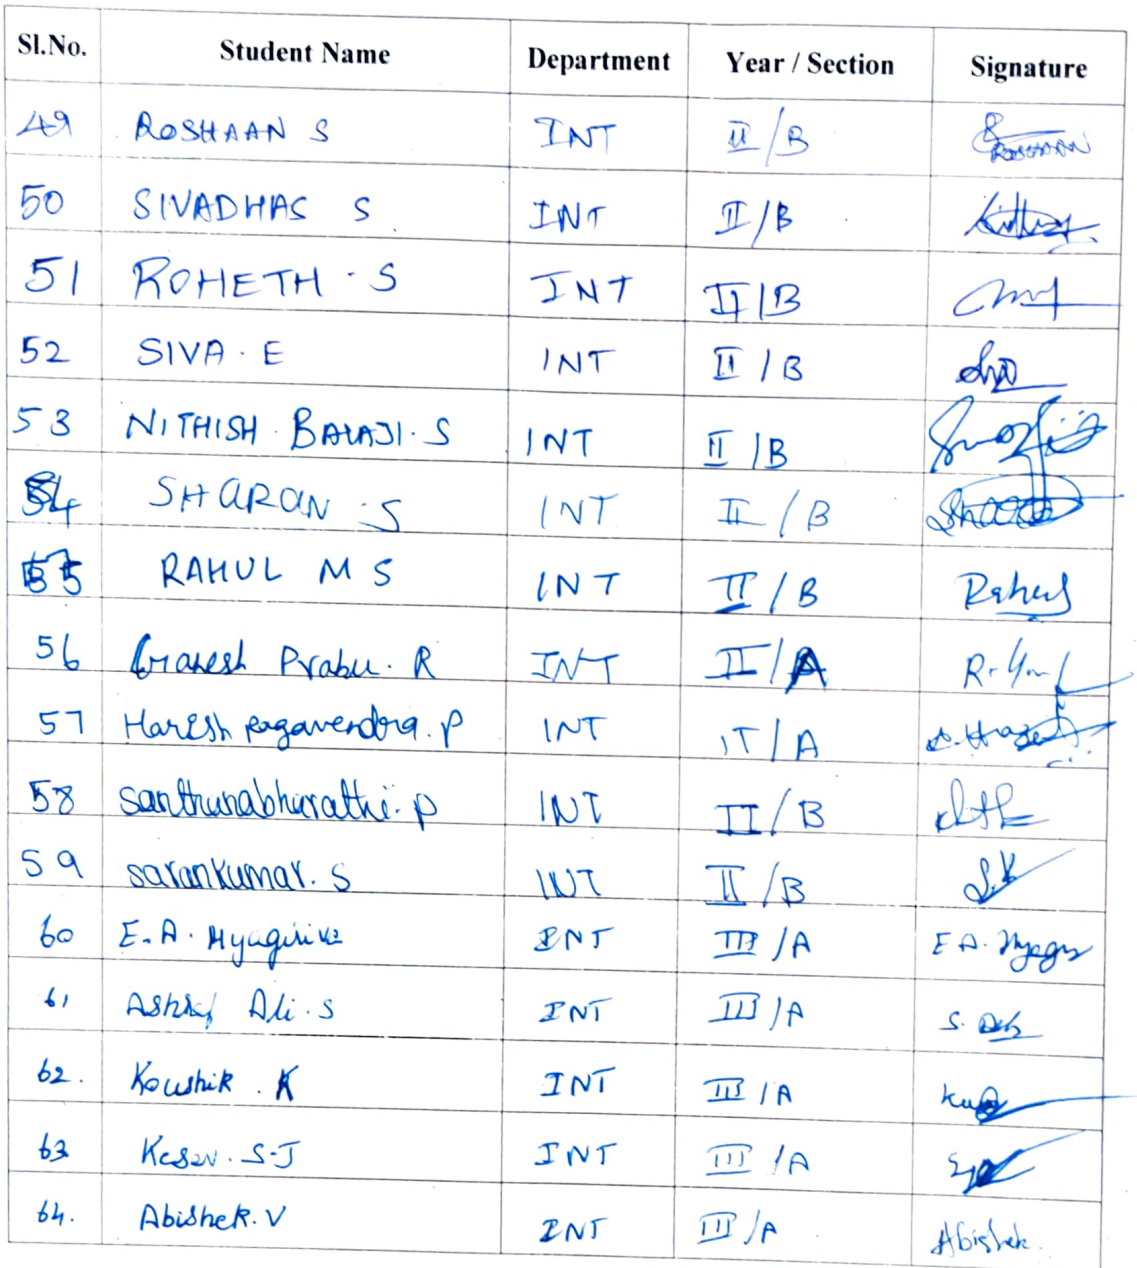 Sl.No. Student Name Department Year / Section Signature
49 ROSHAAN S INT II/B ROSHAAN
50 SIVADHAS S INT II/B
51 ROHETH . S INT II/B
52 SIVA . E INT II/B
53 NITHISH . BALAJI . S INT II/B
54 SHARAN . S INT II/B
55 RAHUL M S INT II/B Rahul
56 Ganesh Prabu. R INT II/A
57 Haresh ragavendra. P INT II/A
58 santhanabharathi. p INT II/B
59 sarankumar. S INT II/B S.K
60 E.A. INT III/A E A.
61 Ashraf Ali . S INT III/A S.
62. Koushik . K INT III/A
63 Kesav . S.J INT III/A
64. Abishek. V INT III/A Abishek.